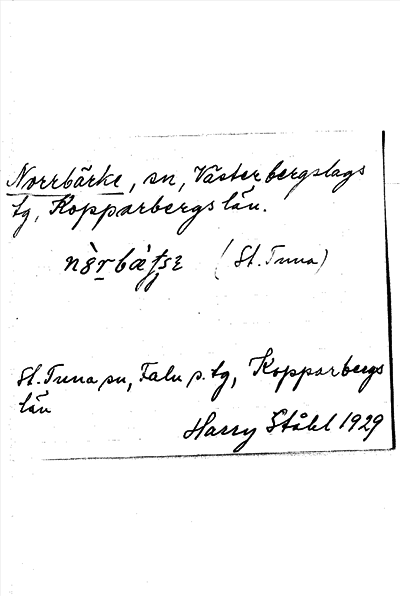 Norrbärke, sn, Västerbergslags
tg, Kopparbergs län.
(St. Tuna)
St. Tuna sn, Falu s. tg, Kopparbergs
län
Harry Ståhl 1929